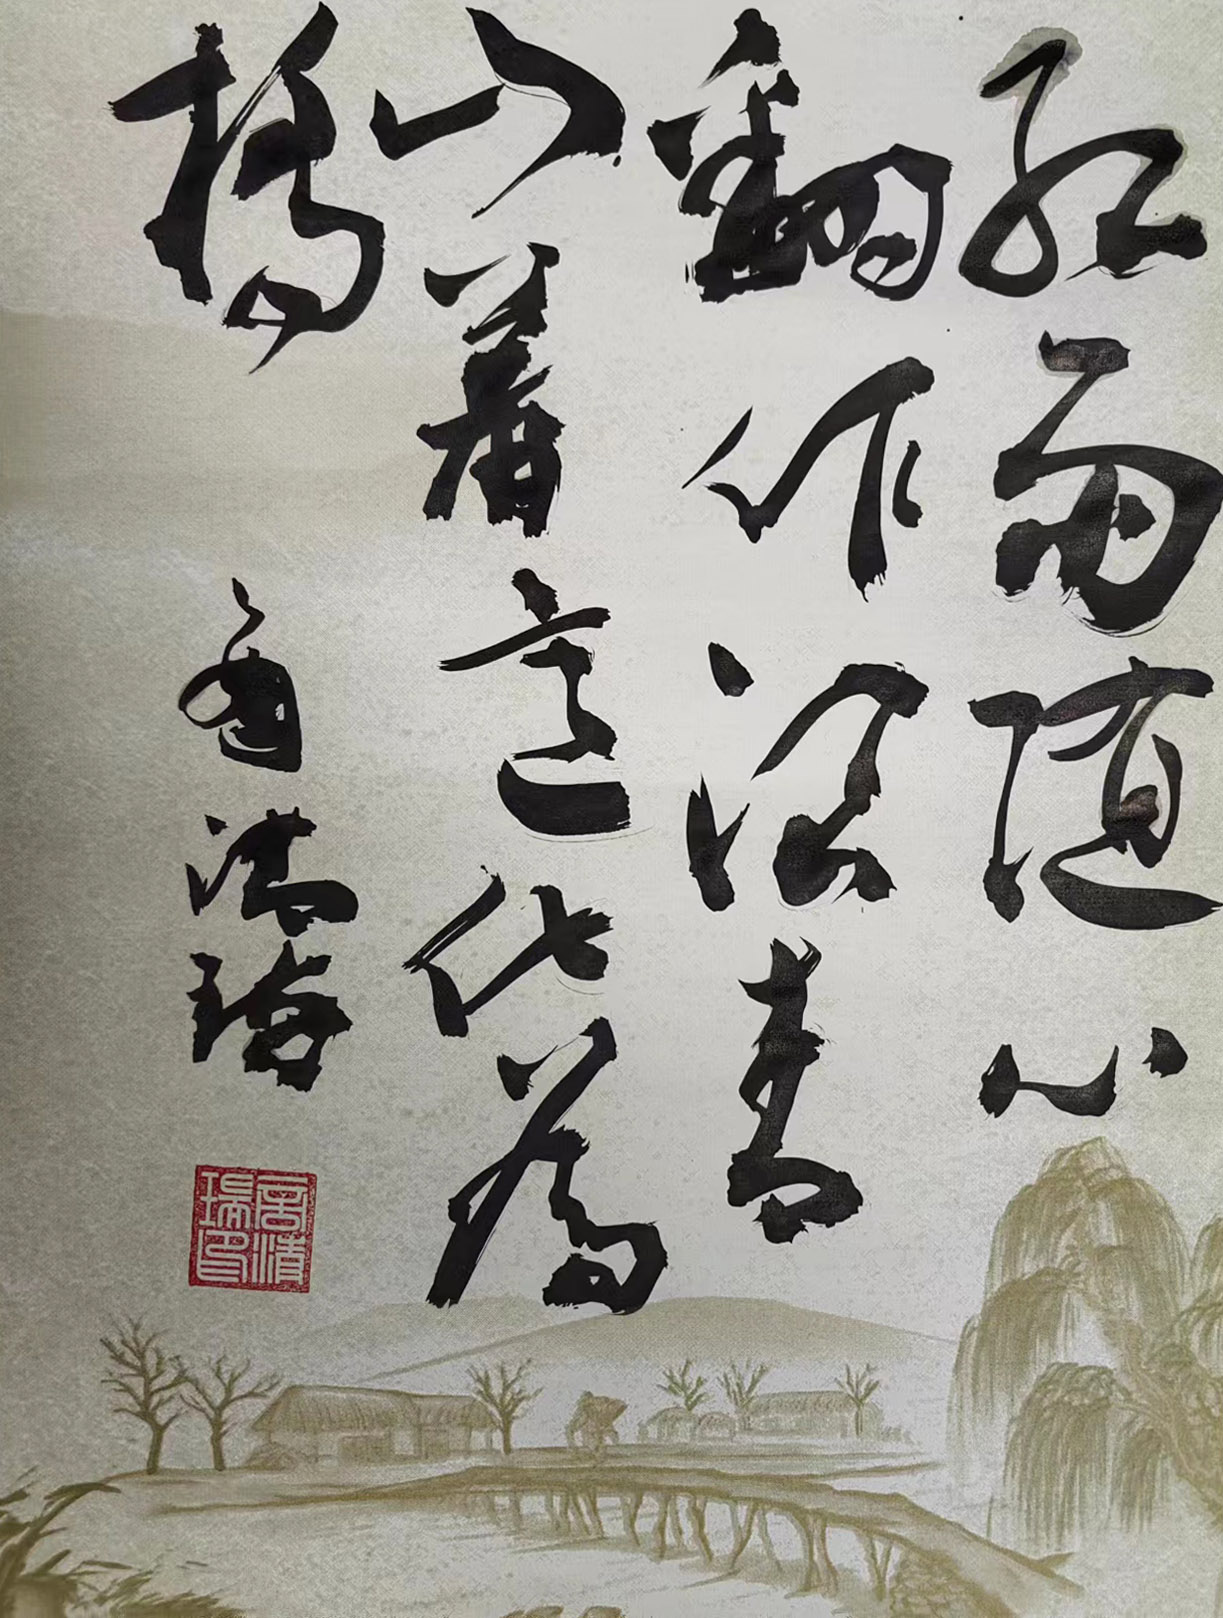 红雨随心
翻作浪青
山着意化为
桥
周清瑞
周清瑞印